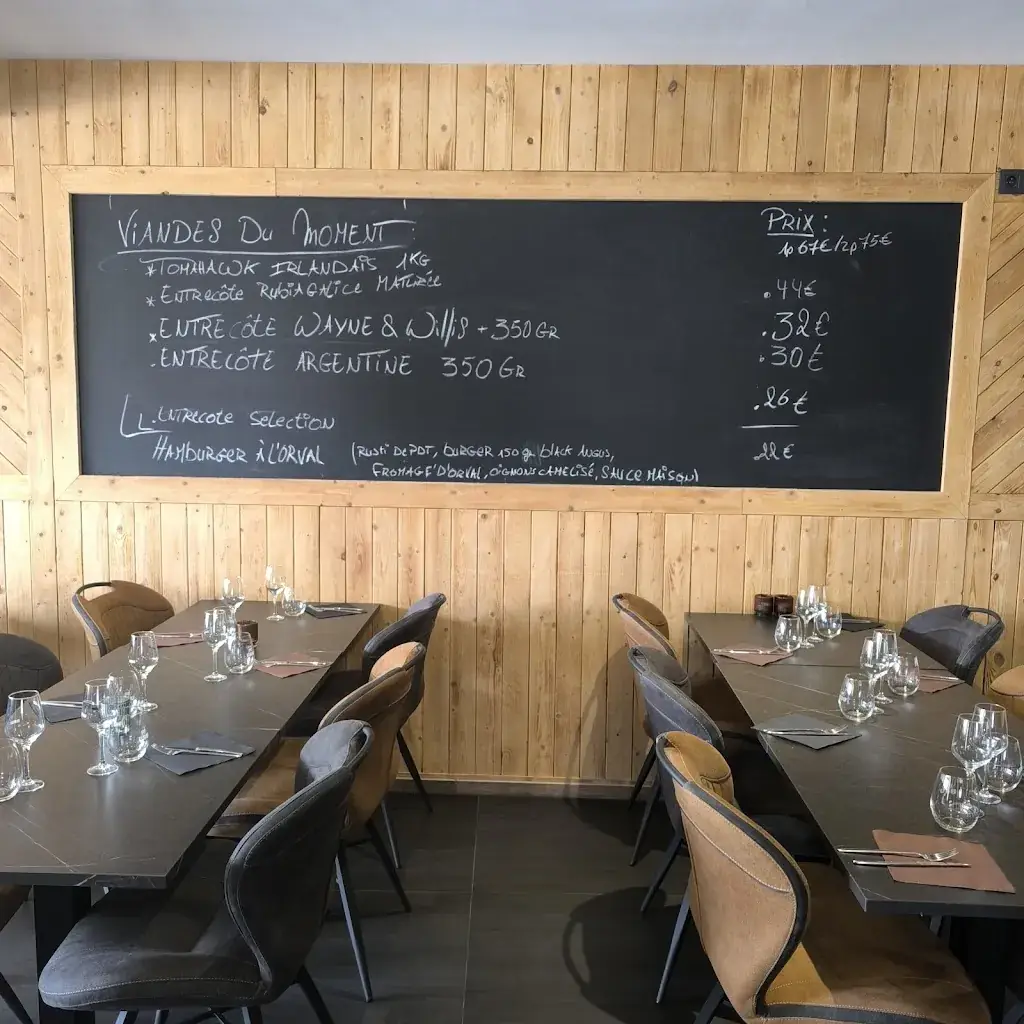 VIANDES DU MOMENT : PRIX :
1p 67€/2p 75€
*TOMAHAWK IRLANDAIS 1KG
*ENTRECÔTE RUBIA GALICE MATURÉE .44€
*.ENTRECÔTE WAYNE & WILLIS + 350GR .32€
.ENTRECÔTE ARGENTINE 350GR .30€
.ENTRECOTE SELECTION .26€
HAMBURGER À L'ORVAL (RUSTI DE PDT, BURGER 150 gr black ANGUS, 22€
FROMAGE D'ORVAL, OIGNONS CAMELISÉ, SAUCE MAISON)